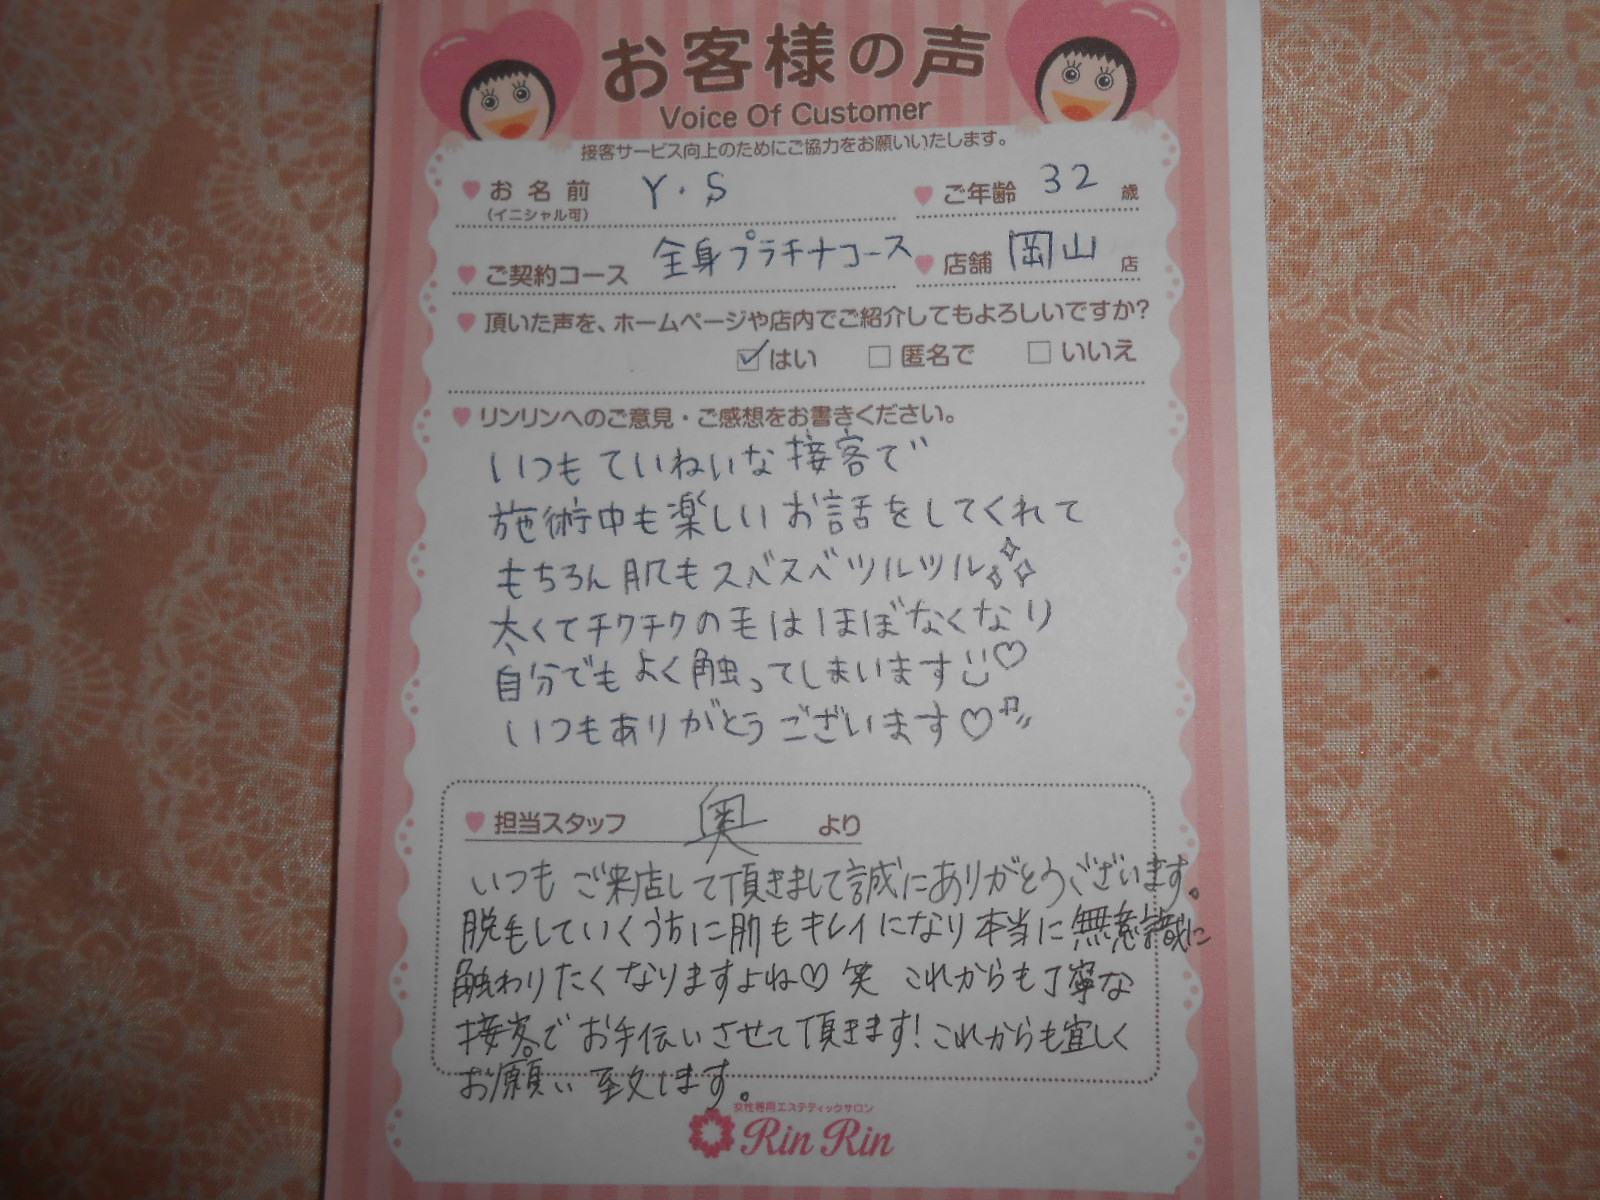 お客様の声
Voice Of Customer
接客サービス向上のためにご協力をお願いいたします。
お名前 Y・S ご年齢 32 歳
(イニシャル可)
ご契約コース 全身プラチナコース 店舗 岡山 店
頂いた声を、ホームページや店内でご紹介してもよろしいですか?
はい 匿名で いいえ
リンリンへのご意見・ご感想をお書きください。
いつもていねいな接客で
施術中も楽しいお話をしてくれて
もちろん肌もスベスベツルツル
太くてチクチクの毛はほぼなくなり
自分でもよく触ってしまいます
いつもありがとうございます♡
担当スタッフ 奥 より
いつもご来店して頂きまして誠にありがとうございます。
脱毛していくうちに肌もキレイになり本当に無意識に
触わりたくなりますよね♡笑 これからも丁寧な
接客でお手伝いさせて頂きます!これからも宜しく
お願い致します。
女性専用エステティックサロン
Rin Rin